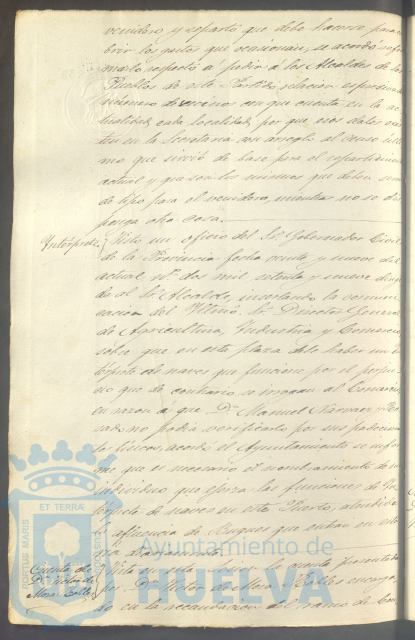 venidero y reparto que debe hacerse para cu-
brir los gastos que ocasionan, se acordó infor-
marlo respecto á pedir á los Alcaldes de los
Pueblos de este Partido relación espresiva del
número de vecinos con que cuenta en la ac-
tualidad cada localidad, por que esos datos exis-
ten en la Secretaria con arreglo al censo ulti-
mo que sirvió de base para el repartimiento
actual y que son los mismos que deben servir
de tipo para el venidero, mientras no se dis-
ponga otra cosa.
Intérprete
Visto un oficio del Sr. Gobernador Civil
de la Provincia fecha veinte y nueve del
actual nº dos mil setenta y nueve dirigi-
da al Sr. Alcalde, insertando la comuni-
cación del Iltmo. Sr. Director General
de Agricultura, Industria y Comercio
sobre que en esta plaza debe haber un in-
térprete de naves que funcione por el perjui-
cio que de contrario se irrogan al Comercio
en razon á que D. Manuel Narvaez
no podia verificarlo por sus padecimien-
tos fisicos, acordó el Ayuntamiento se infor-
me que es necesario el nombramiento de un
individuo que ejerza las funciones de In-
térprete de naves en este Puerto, atendida
la afluencia de Buques que entran en esta
ria
Cuenta de
D. Victor de
Mora Robles
Vista en esta la cuenta presentada
por D. Victor de Mora Robles encarga-
do en la recaudacion del ramo de Con
PORTUS MARIS
ET TERRAE
Ayuntamiento de
HUELVA